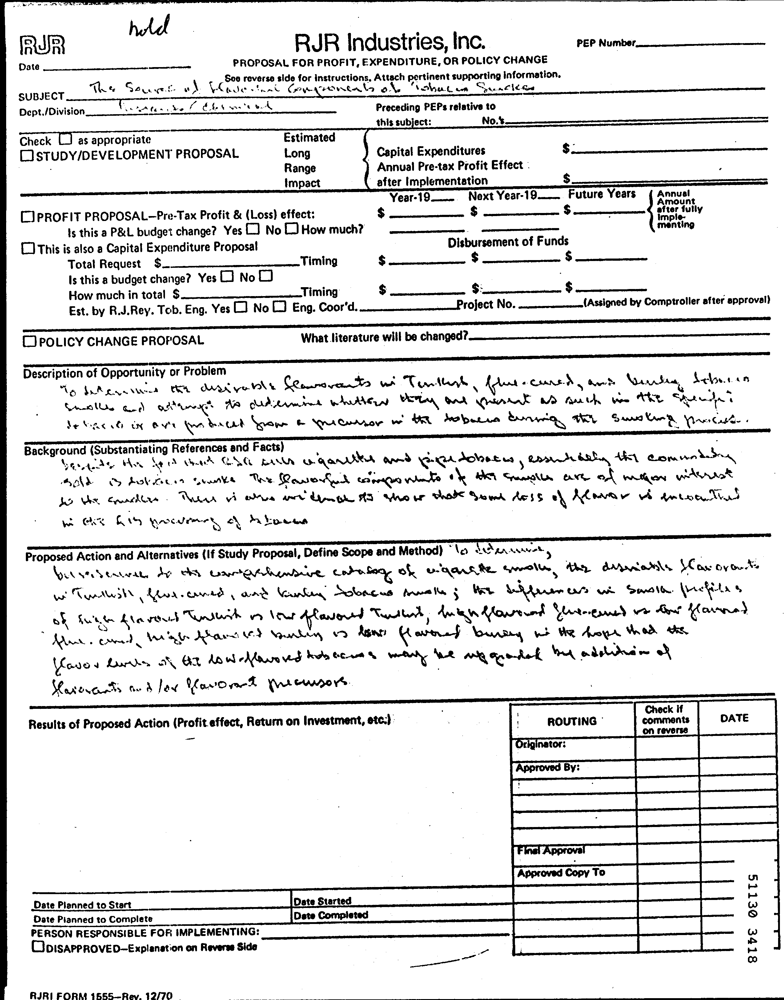 hold
RJR
RJR Industries, Inc.
PEP Number
Date
PROPOSAL FOR PROFIT, EXPENDITURE, OR POLICY CHANGE
See reverse side for Instructions, Attach pertinent supporting information.
SUBJECT The Source of Flavorful Components of Tobacco Smokes
Dept./Division Research / Chemical
Preceding PEPs relative to
this subject: No.'s
Check ☐ as appropriate
☐ STUDY/DEVELOPMENT PROPOSAL
Estimated
Long
Range
Impact
Capital Expenditures $
Annual Pre-tax Profit Effect
after Implementation $
Year-19 Next Year-19 Future Years
Annual
Amount
after fully
Imple-
menting
☐ PROFIT PROPOSAL—Pre-Tax Profit & (Loss) effect: $ $ $
Is this a P&L budget change? Yes ☐ No ☐ How much?
☐ This is also a Capital Expenditure Proposal
Disbursement of Funds
Total Request $ Timing $ $ $
Is this a budget change? Yes ☐ No ☐
How much in total $ Timing $ $ $
Est. by R.J.Rey. Tob. Eng. Yes ☐ No ☐ Eng. Coor'd. Project No. (Assigned by Comptroller after approval)
☐ POLICY CHANGE PROPOSAL What literature will be changed?
Description of Opportunity or Problem
To determine the desirable flavorants in Turkish, flue-cured, and burley tobacco
smokes and attempt to determine whether they are present as such in the specific
tobacco or are produced from a precursor in the tobacco during the smoking process.
Background (Substantiating References and Facts)
Despite the fact that sells cigarettes and pipe tobaccos, essentially the commodity
sold is tobacco smoke. The flavorful components of the smokes are of major interest
to the smoker. There is also evidence to show that some loss of flavor is encountered
in the processing of tobacco
Proposed Action and Alternatives (If Study Proposal, Define Scope and Method) To determine,
by reference to the comprehensive catalog of cigarette smoke, the desirable flavorants
in Turkish, flue-cured, and burley tobacco smoke; the differences in smoke profiles
of high flavored Turkish vs low flavored Turkish, high flavored flue-cured vs low flavored
flue-cured, high flavored burley vs low flavored burley in the hope that the
flavor levels of the low-flavored tobaccos may be upgraded by addition of
flavorants and/or flavorant precursors
Results of Proposed Action (Profit effect, Return on Investment, etc.)
ROUTING
Check if
comments
on reverse
DATE
Originator:
Approved By:
Final Approval
Approved Copy To
Date Planned to Start
Date Started
Date Planned to Complete
Date Completed
PERSON RESPONSIBLE FOR IMPLEMENTING:
☐ DISAPPROVED—Explanation on Reverse Side
51130 3418
RJRI FORM 1555—Rev. 12/70